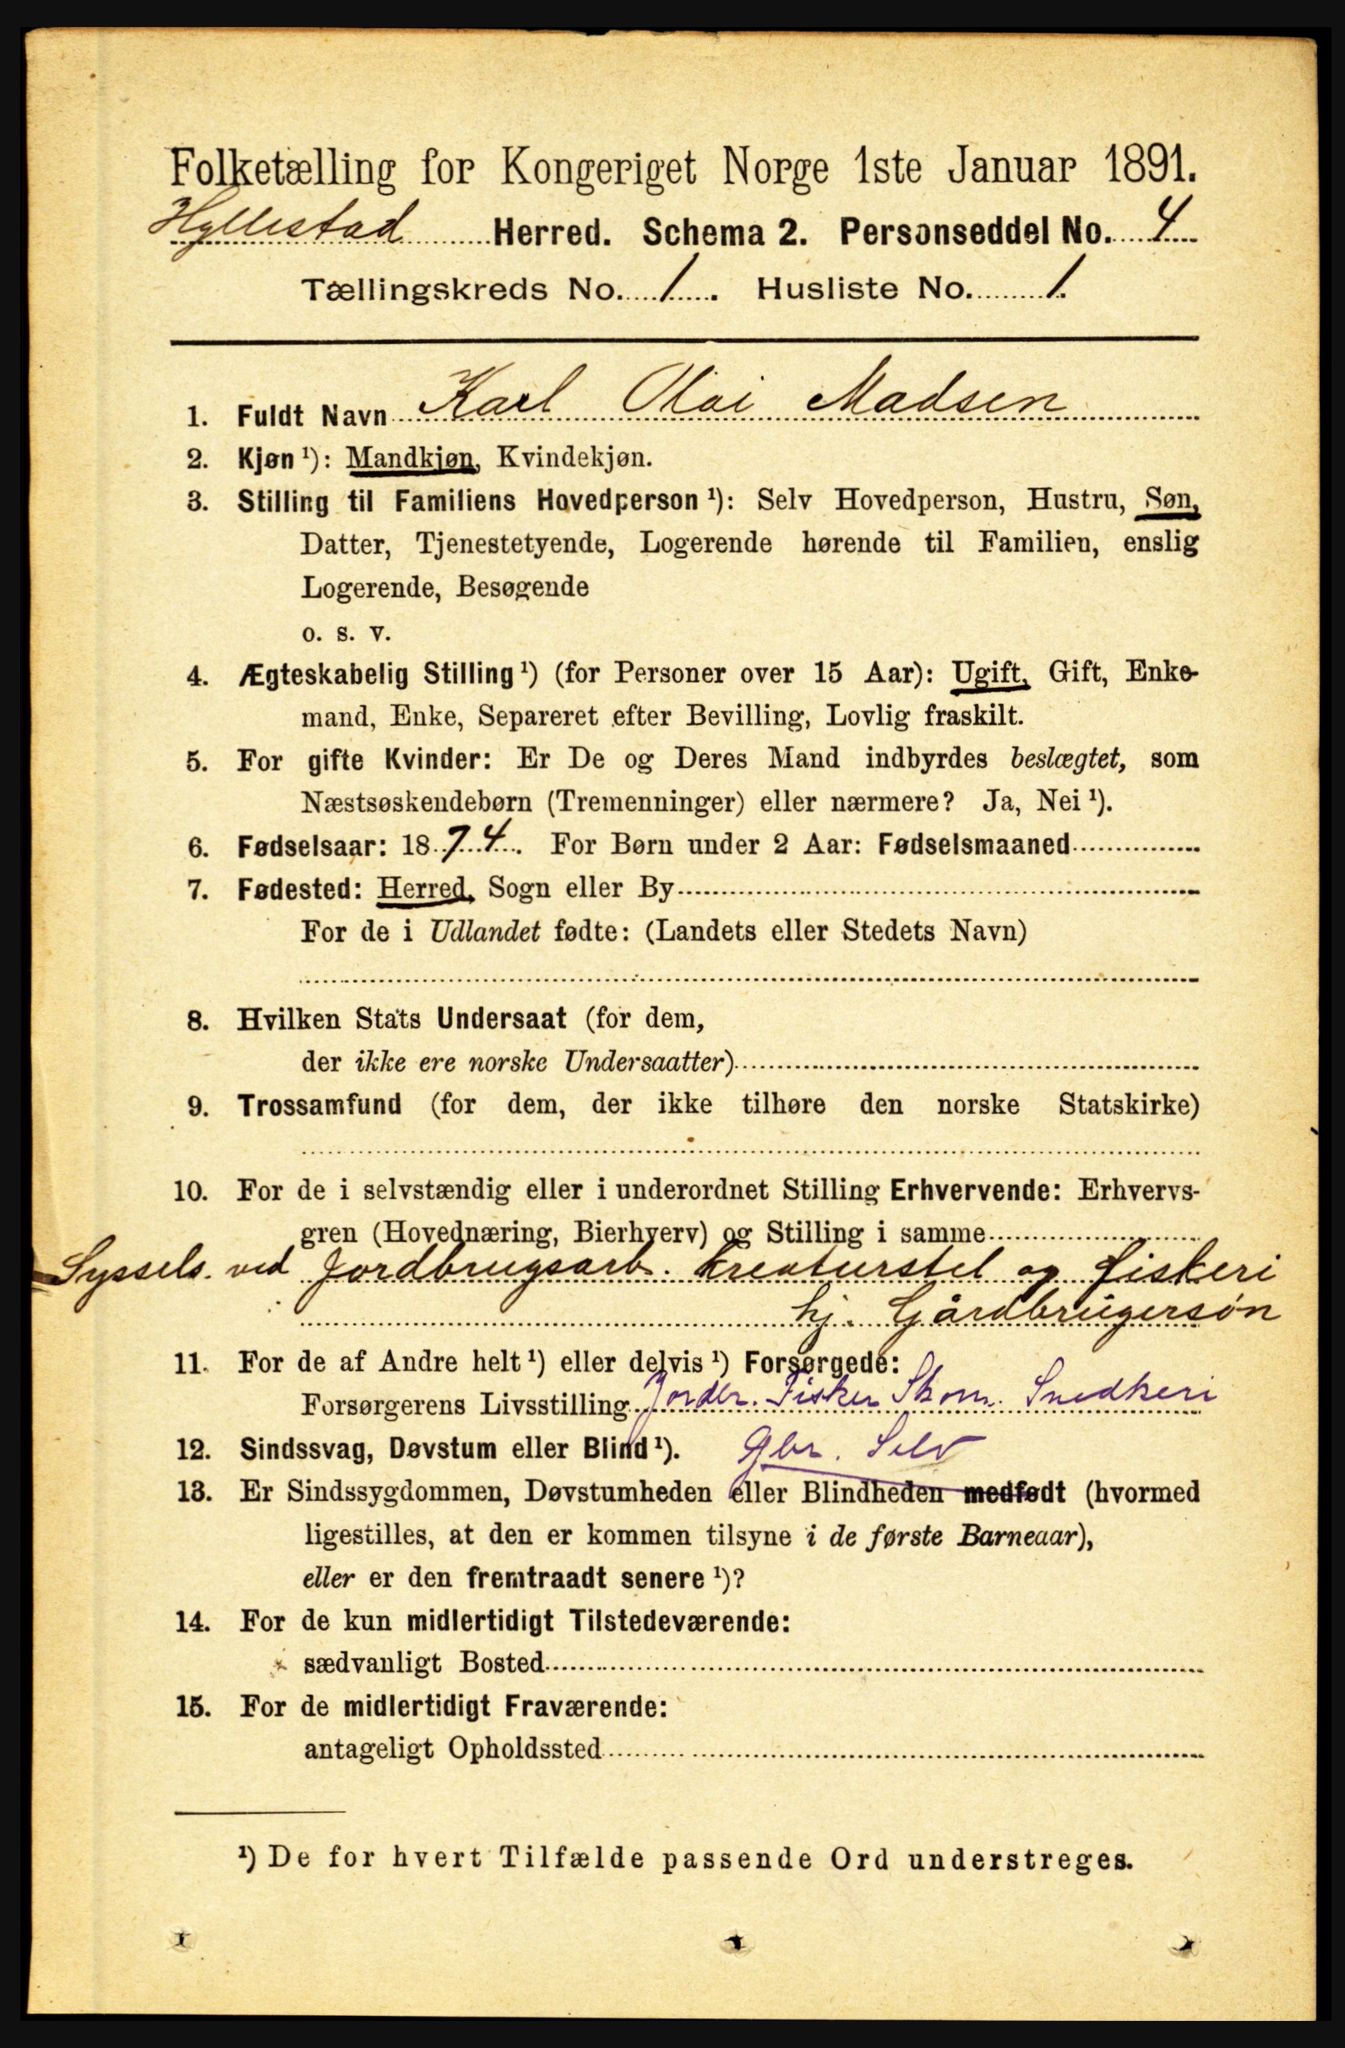 Folketælling for Kongeriget Norge 1ste Januar 1891.
Hyllestad Herred. Schema 2. Personseddel No. 4
Tællingskreds No. 1. Husliste No. 1.
1. Fuldt Navn Karl Olai Madsen
2. Kjøn ¹): Mandkjøn, Kvindekjøn.
3. Stilling til Familiens Hovedperson ¹): Selv Hovedperson, Hustru, Søn,
Datter, Tjenestetyende, Logerende hørende til Familien, enslig
Logerende, Besøgende
o. s. v.
4. Ægteskabelig Stilling ¹) (for Personer over 15 Aar): Ugift, Gift, Enke-
mand, Enke, Separeret efter Bevilling, Lovlig fraskilt.
5. For gifte Kvinder: Er De og Deres Mand indbyrdes beslægtet, som
Næstsøskendebørn (Tremenninger) eller nærmere? Ja, Nei ¹).
6. Fødselsaar: 1874. For Børn under 2 Aar: Fødselsmaaned
7. Fødested: Herred, Sogn eller By
For de i Udlandet fødte: (Landets eller Stedets Navn)
8. Hvilken Stats Undersaat (for dem,
der ikke ere norske Undersaatter)
9. Trossamfund (for dem, der ikke tilhøre den norske Statskirke)
10. For de i selvstændig eller i underordnet Stilling Erhvervende: Erhvervs-
gren (Hovednæring, Bierhverv) og Stilling i samme
Syssels. ved Jordbrugsarb. kreaturstel og fiskeri
hj. Gårdbrugersøn
11. For de af Andre helt ¹) eller delvis ¹) Forsørgede:
Forsørgerens Livsstilling Jordbr. Fisker Skom. Snedkeri
12. Sindssvag, Døvstum eller Blind ¹). Gbr. Selv
13. Er Sindssygdommen, Døvstumheden eller Blindheden medfødt (hvormed
ligestilles, at den er kommen tilsyne i de første Barneaar),
eller er den fremtraadt senere ¹)?
14. For de kun midlertidigt Tilstedeværende:
sædvanligt Bosted
15. For de midlertidigt Fraværende:
antageligt Opholdssted
¹) De for hvert Tilfælde passende Ord understreges.